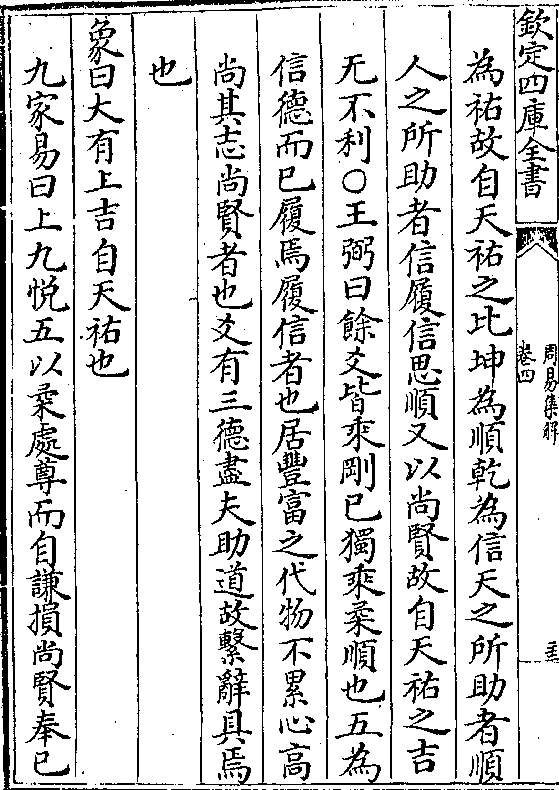 欽定四庫全書
周易集解
卷四
為祐故自天祐之比坤為順乾為信天之所助者順
人之所助者信履信思順又以尚賢故自天祐之吉
无不利○王弼曰餘爻皆乘剛已獨乘柔順也五為
信德而已履焉履信者也居豐富之代物不累心高
尚其志尚賢者也爻有三德盡夫助道故繫辭具焉
也
象曰大有上吉自天祐也
九家易曰上九悅五以柔處尊而自謙損尚賢奉已